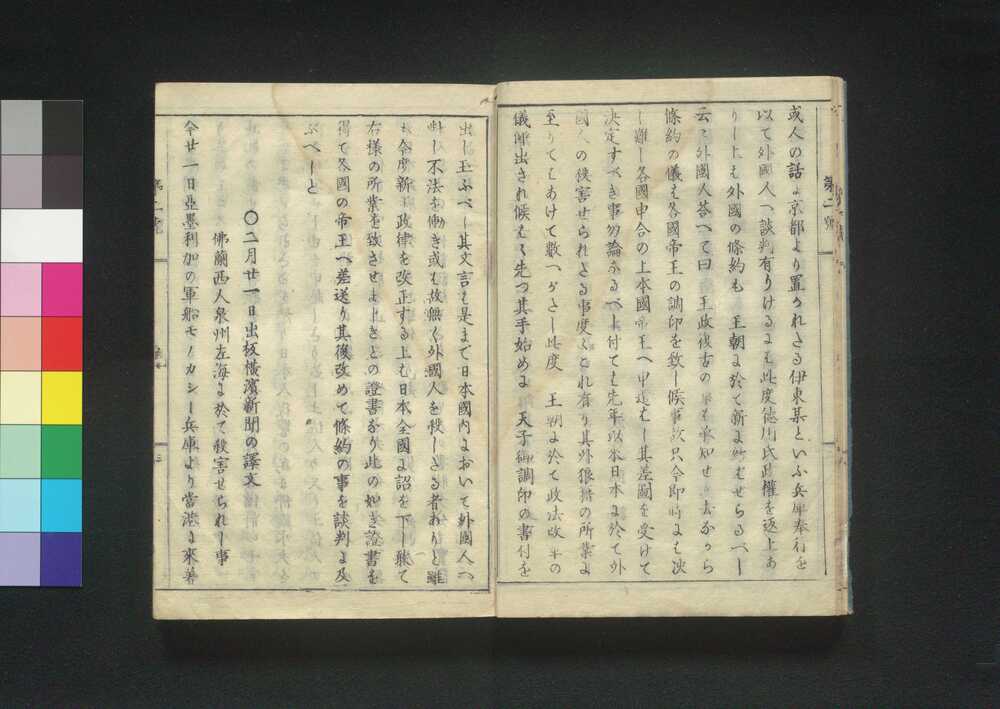 或人の話に京都より置かれたる伊東某といふ兵庫奉行を
以て外國人へ談判有りけるにも此度徳川氏政權を返上あ
りし上も外國の條約も 王朝に於て新に結もせらるべし
云々外國人答へて曰 王政復古の事も承知せり去ながら
條約の儀も各國帝王の調印を致し候事故只今即時にも决
し難し各國申合の上本國帝王へ申送もし其差圖を受けて
决定すべき事勿論なるべし付ても先年以来日本に於て外
國人の殺害せられたる事度々これ有り其外狼藉の所業に
至りてもあけて數へがたし此度 王朝に於て政法改革の
儀御出され候もゝ先つ其手始めに 天子御調印の書付を
第二號
出し玉ふべし其文言も是まで日本國内において外國人へ
對し不法を働き或も故無く外國人を殺したる者ありと雖
も今度新に政律を改正する上も日本全國に詔を下し聴て
右樣の所業を致させまじきとの證書なり此の如き證書を
得て各國の帝王へ差送り其後改めて條約の事を談判に及
ぶべしと
〇二月廿一日出板橫濱新聞の譯文
佛蘭西人泉州左海に於て殺害せられし事
今廿一日亞墨利加の軍船モノカシー兵庫より當港に來着
第二號
三